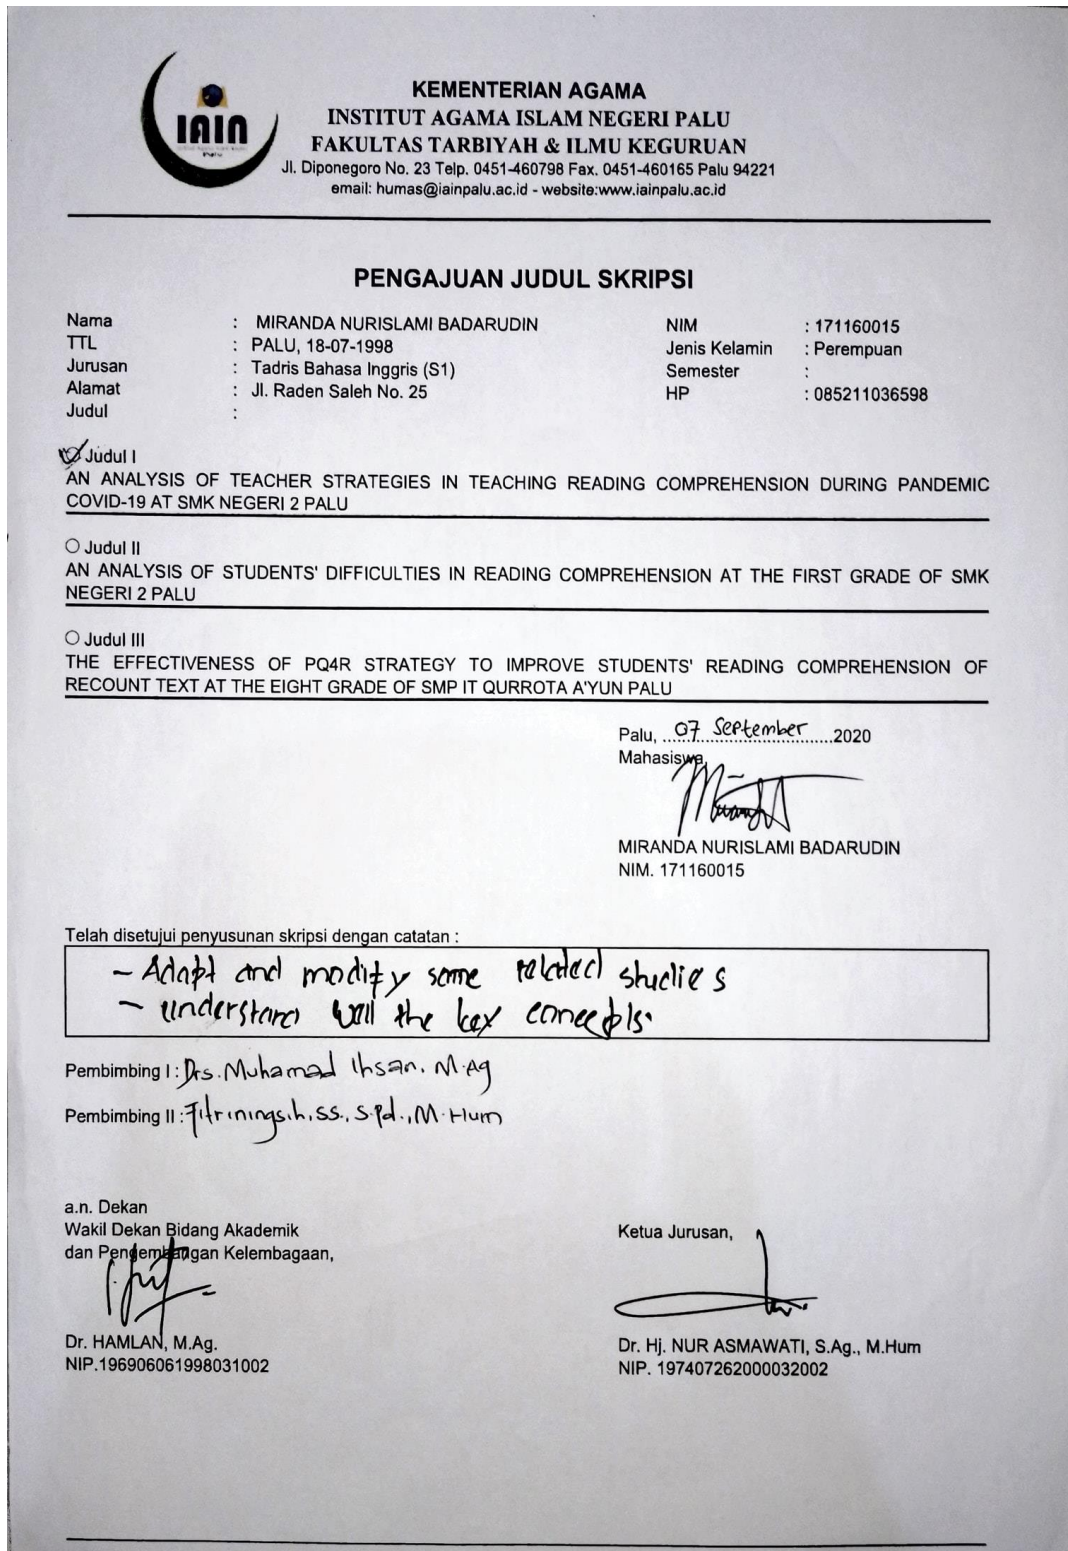 IAIN
Palu
KEMENTERIAN AGAMA
INSTITUT AGAMA ISLAM NEGERI PALU
FAKULTAS TARBIYAH & ILMU KEGURUAN
Jl. Diponegoro No. 23 Telp. 0451-460798 Fax. 0451-460165 Palu 94221
email: humas@iainpalu.ac.id - website:www.iainpalu.ac.id
PENGAJUAN JUDUL SKRIPSI
Nama : MIRANDA NURISLAMI BADARUDIN NIM : 171160015
TTL : PALU, 18-07-1998 Jenis Kelamin : Perempuan
Jurusan : Tadris Bahasa Inggris (S1) Semester :
Alamat : Jl. Raden Saleh No. 25 HP : 085211036598
Judul :
Judul I
AN ANALYSIS OF TEACHER STRATEGIES IN TEACHING READING COMPREHENSION DURING PANDEMIC
COVID-19 AT SMK NEGERI 2 PALU
Judul II
AN ANALYSIS OF STUDENTS' DIFFICULTIES IN READING COMPREHENSION AT THE FIRST GRADE OF SMK
NEGERI 2 PALU
Judul III
THE EFFECTIVENESS OF PQ4R STRATEGY TO IMPROVE STUDENTS' READING COMPREHENSION OF
RECOUNT TEXT AT THE EIGHT GRADE OF SMP IT QURROTA A'YUN PALU
Palu, 07 September 2020
Mahasiswa,
MIRANDA NURISLAMI BADARUDIN
NIM. 171160015
Telah disetujui penyusunan skripsi dengan catatan :
- Adapt and modify some related studies
- understand well the key concepts.
Pembimbing I : Drs. Muhamad Ihsan, M.Ag
Pembimbing II : Fitriningsih, SS., S.Pd., M.Hum
a.n. Dekan
Wakil Dekan Bidang Akademik
dan Pengembangan Kelembagaan,
Ketua Jurusan,
Dr. HAMLAN, M.Ag.
NIP.196906061998031002
Dr. Hj. NUR ASMAWATI, S.Ag., M.Hum
NIP. 197407262000032002